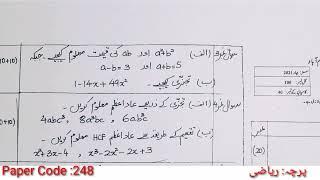 سوال نمبر 2 (الف) a²+b² اور ab کی قیمت معلوم کیجیے۔ جبکہ
a-b=3 اور a+b=5
(ب) تجزی کیجیے۔
1-14x+49x²
(الف) تجزی کے ذریعے عاد اعظم معلوم کریں۔
4abc³, 8a³bc, 6ab³c
(ب) تقسیم کے طریقے سے عاد اعظم HCF معلوم کریں۔
x²+3x-4, x³-2x²-2x+3
(10+10)
(20)
Paper Code :248
پرچہ: ریاضی